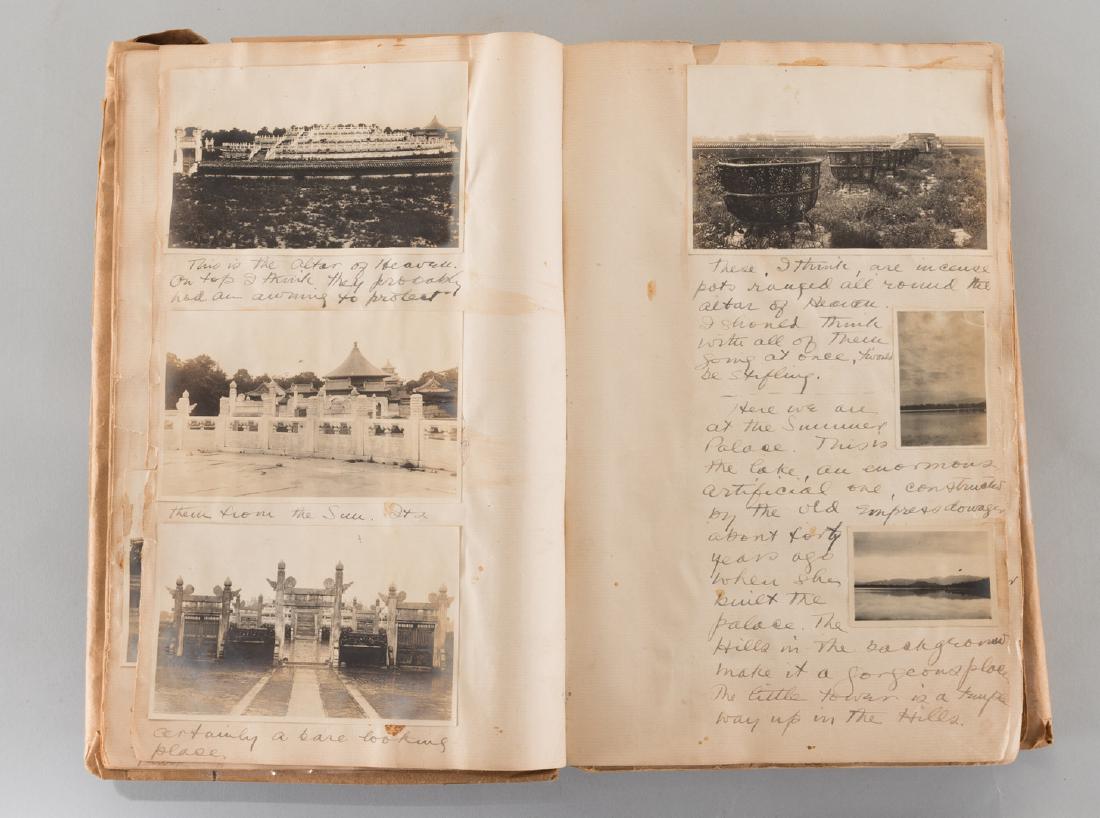 This is the Altar of Heaven.
On top I think they probably
had an awning to protect
them from the Sun. Its
certainly a bare looking
place.
These, I think, are incense
pots ranged all round the
altar of Heaven.
I should think
with all of them
going at once, twould
be stifling.
Here we are
at the Summer
Palace. This is
the lake, an enormous
artificial one, constructed
by the old Empress dowager
about forty
years ago
when she
built the
palace. The
Hills in the background
make it a gorgeous place
The little tower is a temple
way up in the Hills.